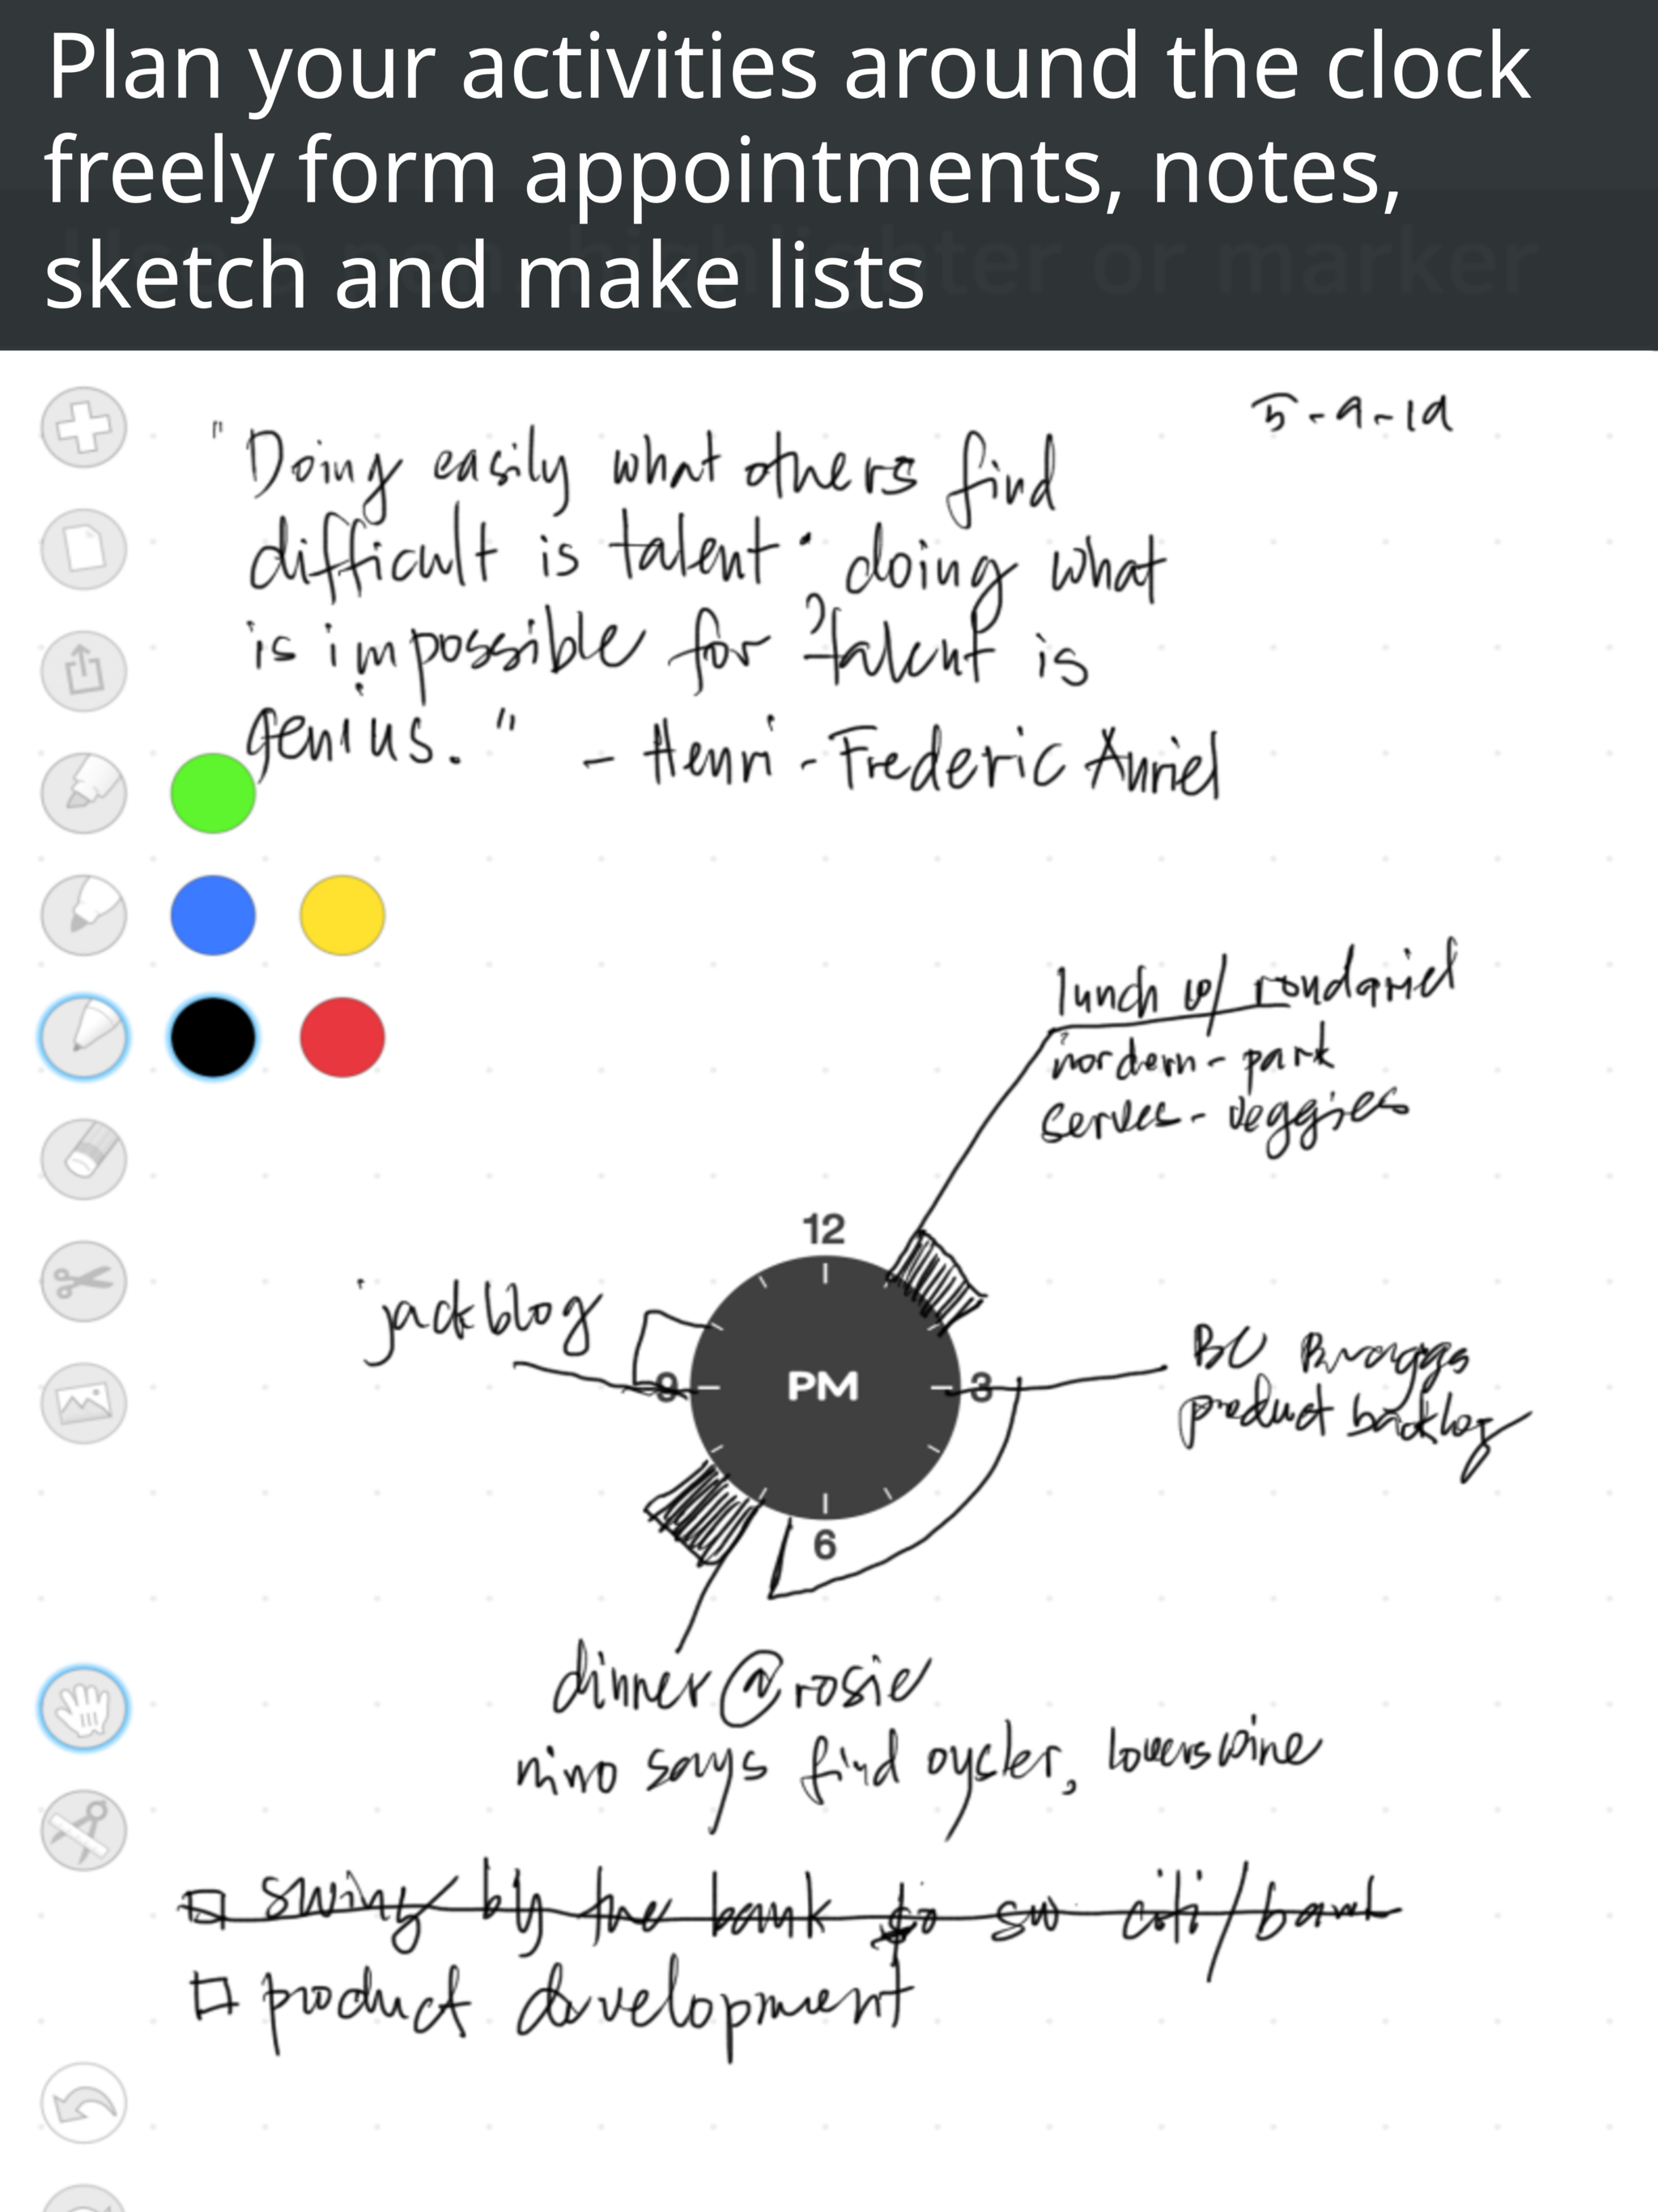 Plan your activities around the clock
freely form appointments, notes,
sketch and make lists
5-9-19
"Doing easily what others find
difficult is talent; doing what
is impossible for talent is
genius." - Henri-Frederic Amiel
lunch w/
park
serves - veggies
12
jackblog
PM
9
3
BC
product backlog
6
dinner @ rosie
nino says find oyster, lowerswine
swing by the bank citi/bank
product development